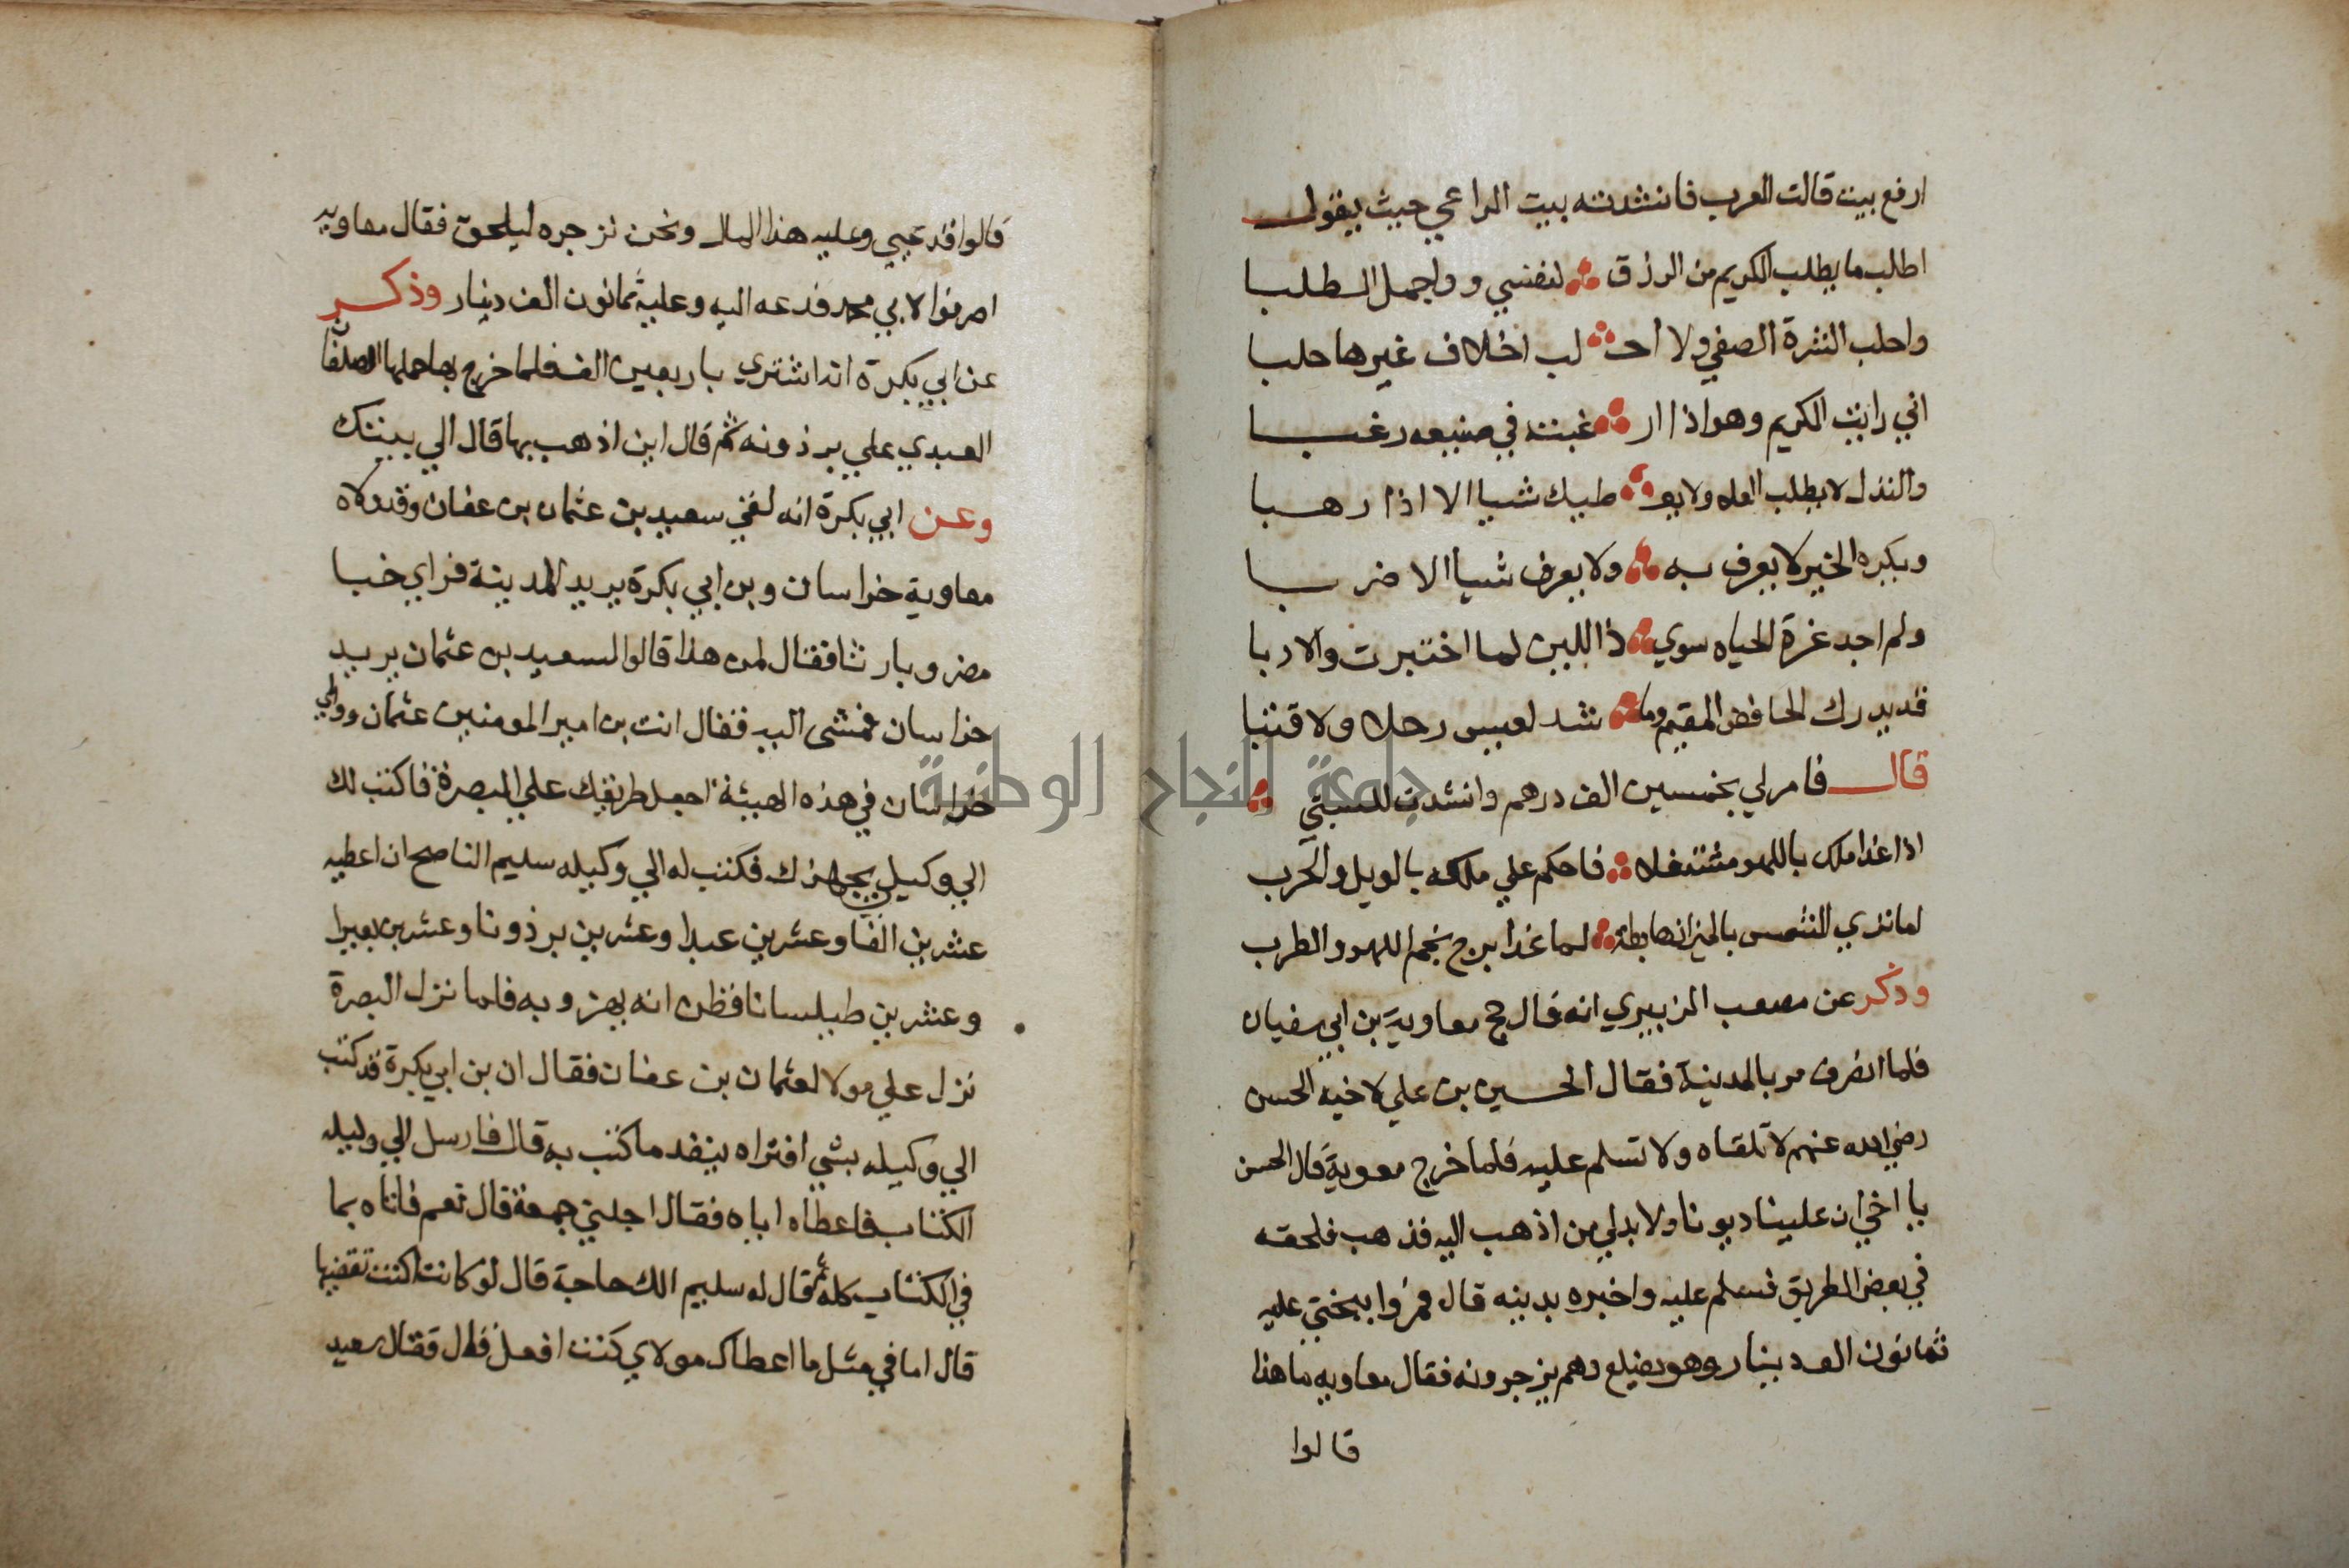 ارفع بيت قالت العرب فانشدته بيت الراعي حيث يقول
اطلب ما يطلب الكريم من الرزق لنفسي و واجمل الطلبا
واحلب الثرة الصفي ولا اح لب اخلاف غيرها حلبا
اني رايت الكريم وهو اذا ار غبته في صنيعه رغبا
والنذل لا يطلب العلا ولا يع طيك شيا الا اذا رهبا
ويكره الخير لا يعرف به ولا يعرف شيا الا ضربا
ولم اجد غرة الحياه سوي ذا اللين لما اختبرت والادبا
قد يدرك الخافض المقيم وما شد لعيس رحلا ولا قتبا
قال فامر لي بخمسين الف درهم وانشدت للبستي
اذا غدا ملك باللهو مشتغلا فاحكم علي ملكه بالويل والحرب
اما تري الشمس بالميزان هابطة لما غدا برج نجم اللهو والطرب
وذكر عن مصعب الزبيري انه قال حج معاوية بن ابي سفيان
فلما انصرف مر بالمدينة فقال الحسين بن علي لاخيه الحسن
رضي الله عنهم لا تلقاه ولا تسلم عليه فلما خرج معوية قال الحسن
يا اخي ان علينا ديونا ولا بد لي من اذهب اليه فذهب فلحقه
في بعض الطريق فسلم عليه واخبره بدينه قال فمروا ببختي عليه
ثمانون الف دينار وهو يضلع وهم يزجرونه فقال معاويه ما هذا
قالوا
قالوا قد عيي وعليه هذا المال ونحن نزجره ليلحق فقال معاويه
اصرفوا لابي محمد فدعه اليه وعليه ثمانون الف دينار وذكر
عن ابي بكرة انه اشتري باربعين الف فلما خرج بها حملها الصلفان
العبدي علي برذونه ثم قال اين اذهب بها قال الي بيتك
وعن ابي بكرة انه لقي سعيد بن عثمان بن عفان وقد ولاه
معاوية خراسان وبن ابي بكرة يريد المدينة فراي خبا
مضروبا رثا فقال لمن هذا قالوا لسعيد بن عثمان يريد
خراسان فمشى اليه فقال انت بن امير المومنين عثمان ووالي
خراسان في هذه الهيئة اجعل طريقك علي البصرة فاكتب لك
الي وكيلي يجهزك فكتب له الي وكيله سليم الناصح ان اعطيه
عشرين الفا وعشرين عبدا وعشرين برذونا وعشرين بعيرا
وعشرين طيلسانا فظن انه يهزو به فلما نزل البصرة
نزل علي مولا لعثمان بن عفان فقال ان بن ابي بكرة قد كتب
الي وكيله بشي افتراه ينفد ما كتب به قال فارسل الي وكيله
الكتاب فاعطاه اياه فقال اجلني جمعة قال نعم فاتاه بما
في الكتاب كله ثم قال له سليم الك حاجة قال لو كانت اكنت تقضيها
قال اما في مثل ما اعطاك مولاي كنت افعل قال فقال سعيد
جامعة النجاح الوطنية